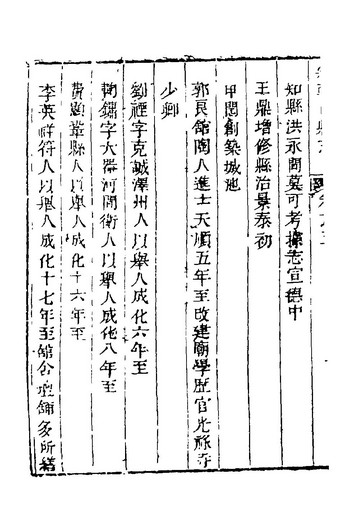 知縣洪永間莫可考據志宣德中
王鼎增修縣治景泰初
甲閏創築城池
郭良館陶人進士天順五年至改建廟學歷官光祿寺
少卿
劉禋字克誠澤州人以舉人成化六年至
字大器河間衛人以舉人成化八年至
費顯鞏縣人以舉人成化十六年至
李英祥符人以舉人成化十七年至館公壇舖多所繕